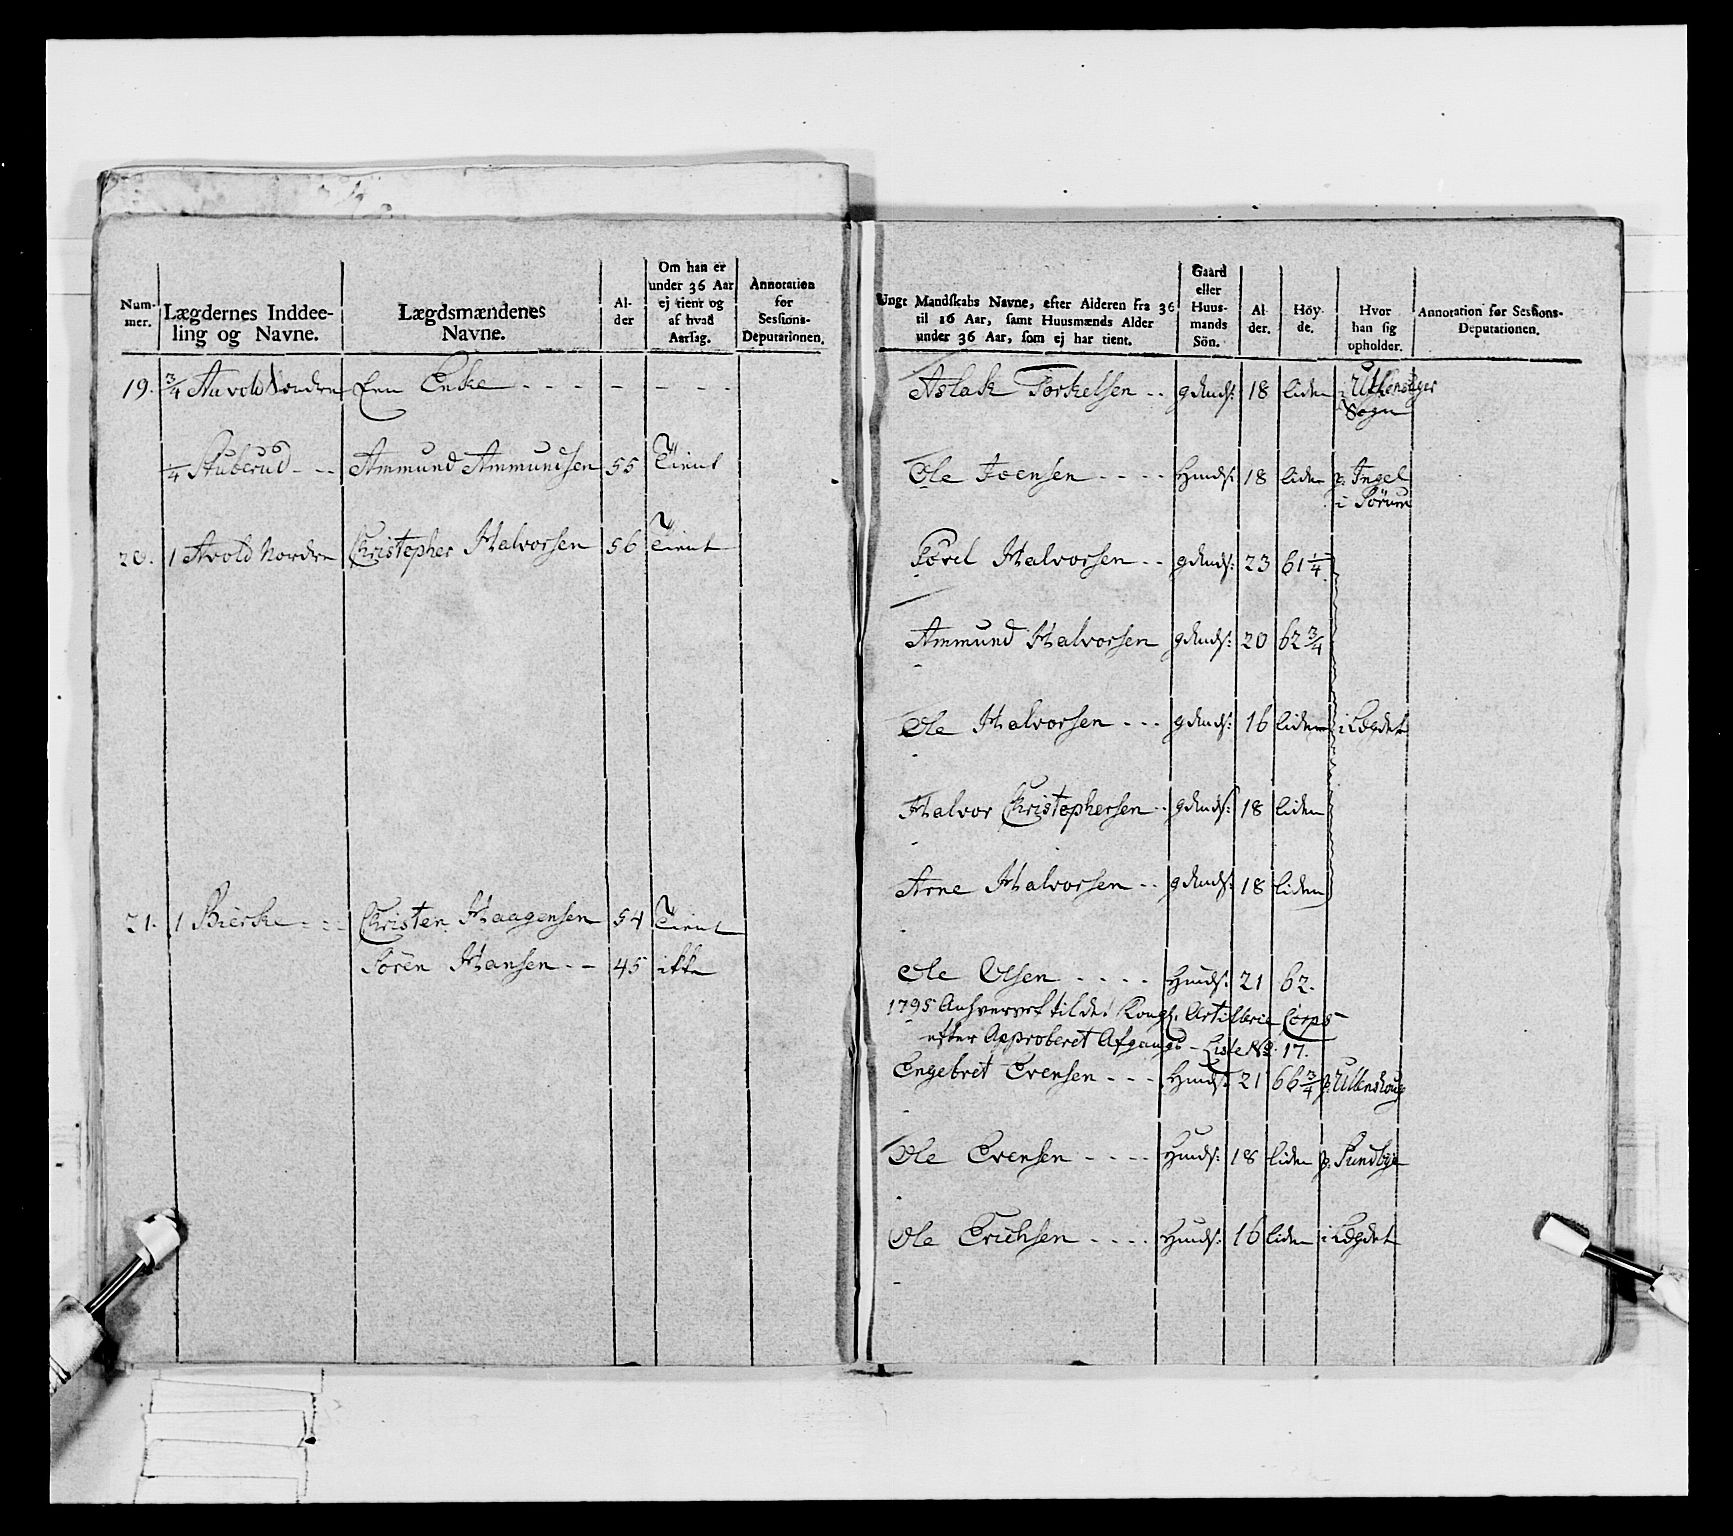 Num-
mer.
Lægdernes Inddee-
ling og Navne.
Lægdsmændenes
Navne.
Al-
der
Om han er
under 36 Aar
ej tient og
af hvad
Aarsag.
Annotation
for
Sessions-
Deputationen.
19. 3/4 Aavold Nordre Een Enke - - - - - - -
1/4 Stuberud - - - Ammund Ammundsen 55 Tient
20. 1 Avold Nordre Christopher Halvorsen 56 Tient
21. 1 Bierke - - - Christen Haagensen 54 Tient
Sören Hansen - - 45 ikke
Ungt Mandskabs Navne, efter Alderen fra 36
til 16 Aar, samt Huusmænds Alder
under 36 Aar, som ej har tient.
Gaard
eller
Huus-
mands
Sön.
Al
der.
Höy-
de.
Hvor
han sig
opholder.
Annotation for Sessions-
Deputationen.
Aslak Torkelsen - - gdmds: 18 liden i
Sogn
Ole Joensen - - - - Hmds: 18 liden p. Ingel
i Sörum
Povel Halvorsen - - gdmds: 23 61 1/4
Ammund Halvorsen gdmds: 20 62 3/4
Ole Halvorsen - - - gdmds: 16 liden i Lægdet
Halvor Christophersen - - gdmds: 18 liden
Arne Halvorsen - - gdmds: 18 liden
Ole Olsen - - - - Hmds: 21 62.
1795 Anhvervet til det Kongl. Artillerie Corps
efter Approberet Afgangs-Liste No. 17.
Engebret Evensen - - - Hmds: 21 66 3/4 p. Ullenshoug
Ole Evensen - - - - Hmds: 18 liden p. Sundbye
Ole Erichsen - - - - Hmds: 16 liden i Lægdet